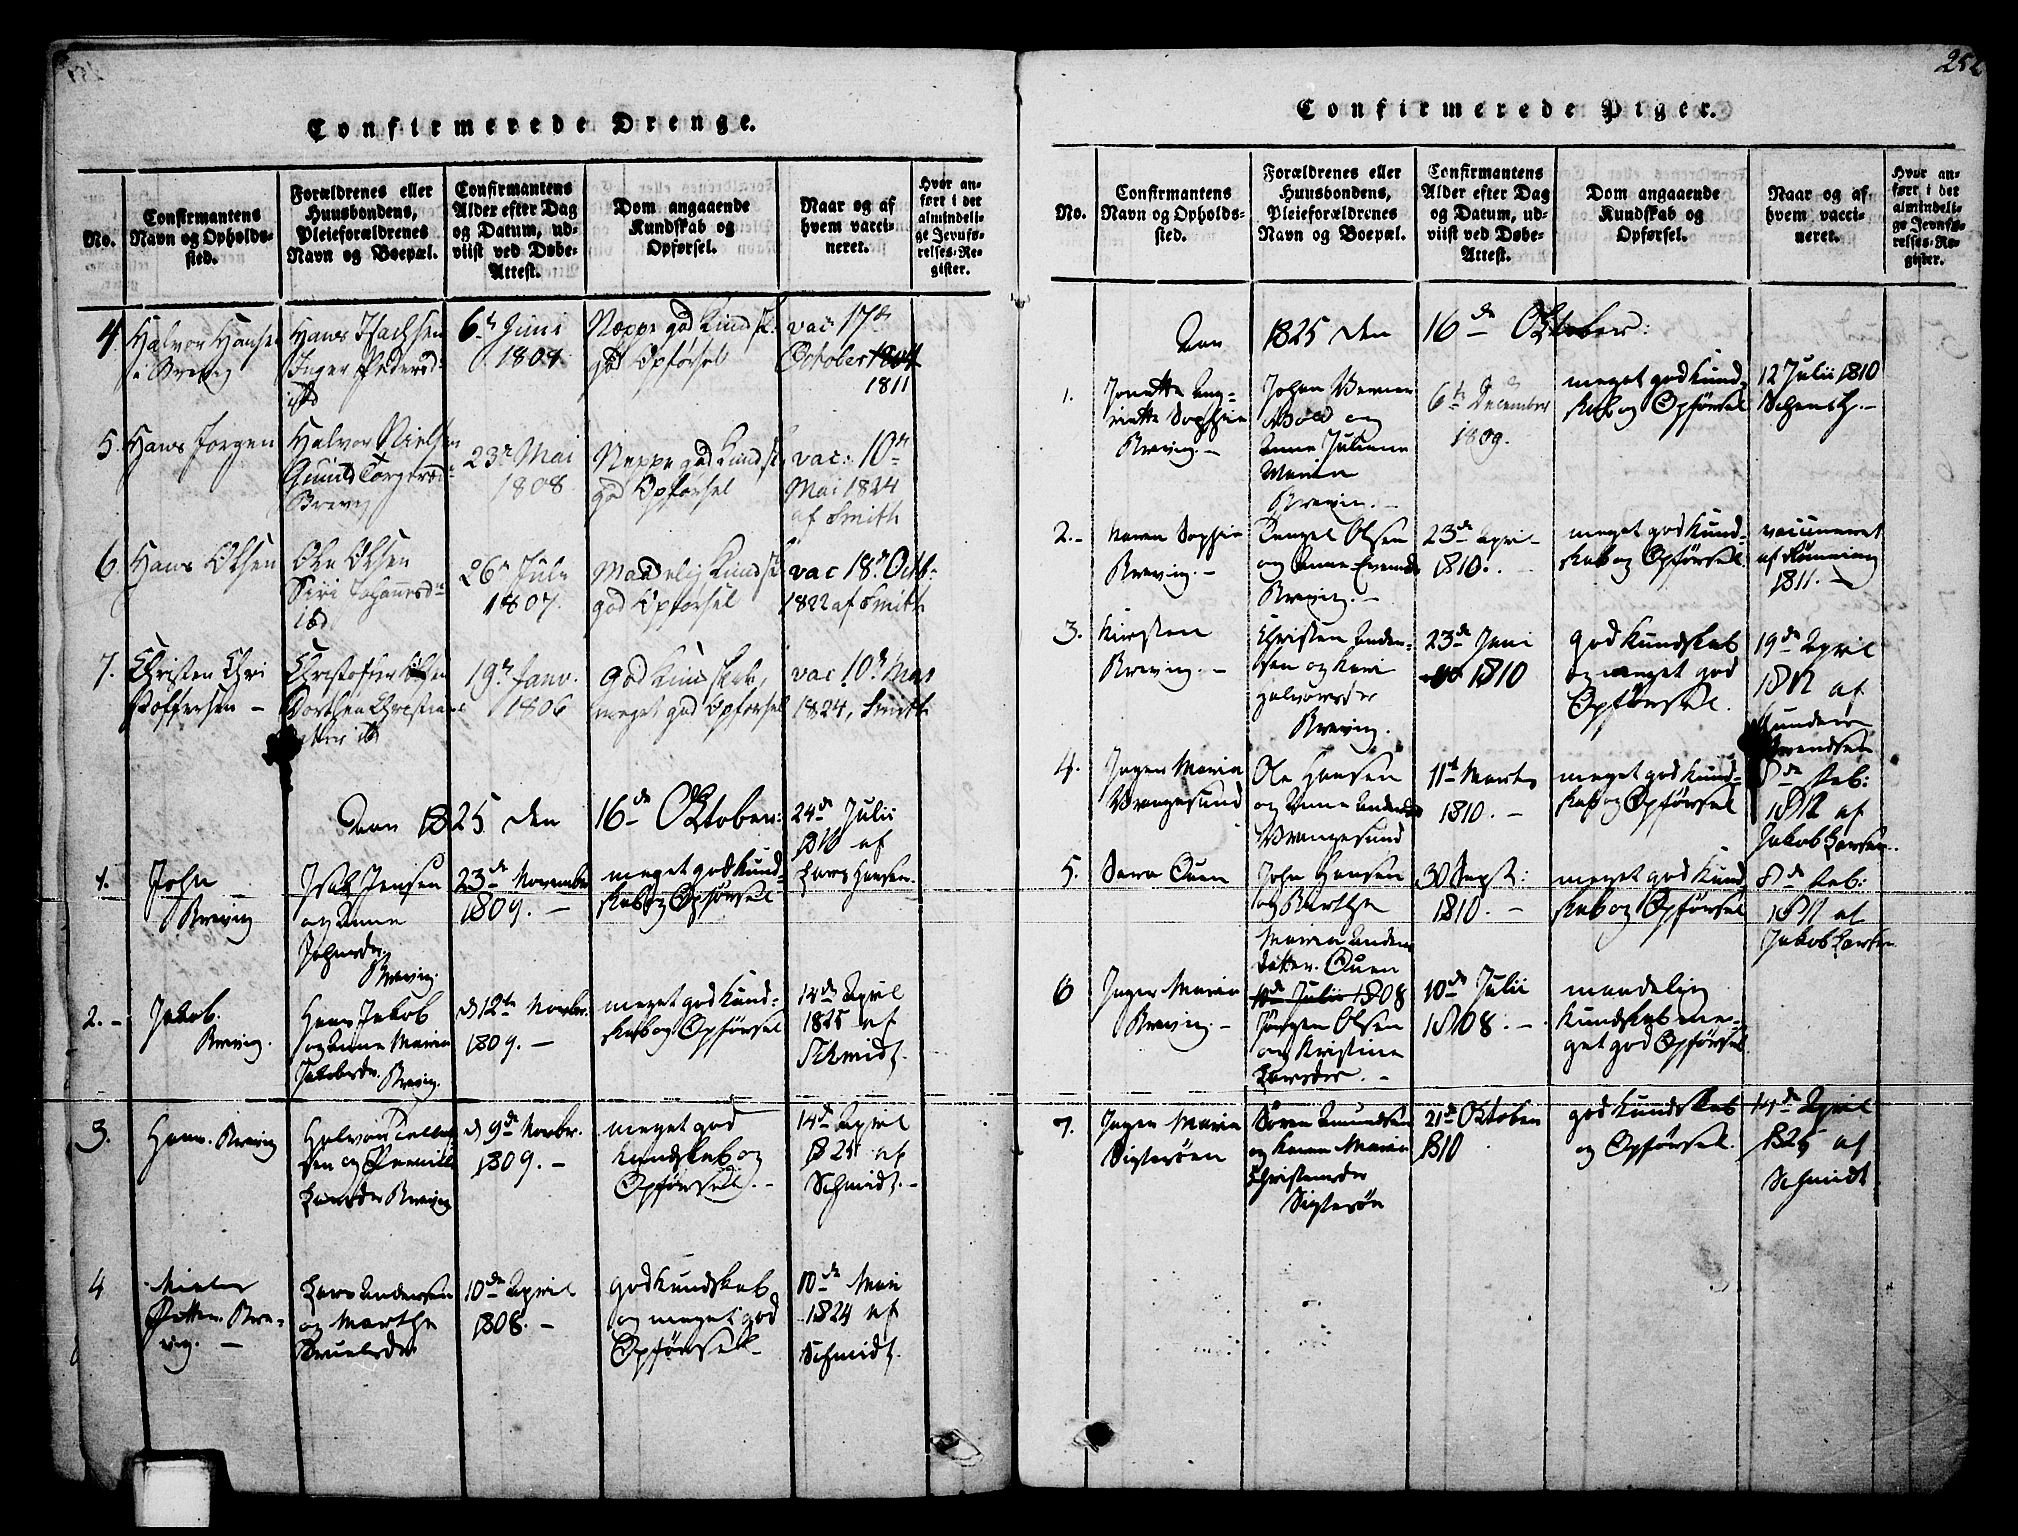 252
Confirmerede Drenge.
No.
Confirmantens
Navn og Opholds-
sted.
Forældrenes eller
Huusbondens,
Pleieforældrenes
Navn og Boepæl.
Confirmantens
Alder efter Dag
og Datum, ud-
viist ved Døbe-
Attest.
Dom angaaende
Kundskab og
Opførsel.
Naar og af
hvem vacci-
neret.
Hvor an-
ført i det
almindeli-
ge Jevnfø-
relses-Re-
gister.
4.
Halvor Hansen
i Brevig
Hans Isachsen
Inger Pedersd.
ibd
6te Juni
1808
Neppe god Kundsk.
god Opførsel
vac: 17de
October 1804
1811
5.
Hans Jørgen
Halvor Nielsen
Gunild Torgersd.
Brevig
23de Mai
1808
Neppe god Kundsk
god Opførsel
vac: 10de
Mai 1824
af Smith
6.
Hans Olsen
Ole Olsen
Siri Johannesd.
ibd
26de July
1807.
Maadelig Kundsk
god Opførsel
vac 18de Octb:
1822 af Smith
7.
Christen Chri
stoffersen –
Christopher Olsen
Dorthea Christian
ibd
19de Janv.
1806
God Kundskab,
meget god Opførsel
vac 10de Mai
1824, Smith
Aar 1825 den 16de Oktober:
1.
John
Brevig
Isak Jensen
og Anne
Johnsdr.
Brevig.
23de November
1809. –
meget god Kund-
skab og Opførsel
24de Julii
1810 af
Lars Hansen.
2.
Jakob.
Brevig.
Hans Jakob
og Anne Maria
Jakobsdr. Brevig.
d 12te Novbr.
1809. –
meget god Kund-
skab og Opførsel
14de April
1825 af
Schmidt.
3.
Hans. Brevig
Halvor Tollef-
sen og Pernille
Larsdr Brevig
d 9de Novbr.
1809. –
meget god
Kundskab og
Opførsel. –
14de April
1825 af
Schmidt. –
4
Nielen
Petter. Bre-
vig. –
Lars Andersen
og Marthe
10de April
1808. –
god Kundskab
og meget god
Opførsel –
10de Mai
1824 af
Schmidt.
Confirmerede Piger.
No.
Confirmantens
Navn og Opholds-
sted.
Forældrenes eller
Huusbondens,
Pleieforældrenes
Navn og Boepæl.
Confirmantens
Alder efter Dag
og Datum, ud-
viist ved Døbe-
Attest.
Dom angaaende
Kundskab og
Opførsel.
Naar og af
hvem vacci-
neret.
Hvor an-
ført i det
almindeli-
ge Jevnfø-
relses-Re-
gister.
Aar 1825 den 16de Oktober:
1.
Sophie
Brevig. –
Johan Werner
og
Anne Juliane
Maria
Brevig. –
6te December
1809.
meget god Kund-
skab og Opførsel
12 Julii 1810
2. –
Maren Sophie
Brevig. –
Olsen
og Anne
Brevig. –
23de April
1810. –
meget god Kund-
skab og Opførsel
vaccineret
af Rønning
1811. –
3.
Kirsten
Brevig. –
Christen Ander-
sen og Kari
Halvorsdr
Brevig.
23de Juni
1810
god Kundskab
og meget god
Opførsel.
19de April
1812 af
4.
Inger Maria
Vrangesund
Ole Hansen
og Anne Andersdr
Vrangesund
11te Marts
1810. –
meget god Kund-
skab og Opførsel
8de Feb:
1812 af
Jakob Larsen.
5.
Sara Øuen
John Hansen
og Berthe
Maria Anders
datter. Øuen
30 Sept:
1810. –
meget god Kund
skab og Opførsel
8de Feb:
1812 af
Jakob Larsen
6
Inger Maria
Brevig. –
10de Julii 1808
Jørgen Olsen
og Kristine
Larsdr. –
10de Julii
1808. –
maadelig
Kundskab me-
get god Opførsel.
7.
Inger Maria
Sigterøen
Søren Amundsen
og Karen Maria
Christensdr
Sigterøn
21de Oktober
1810
god Kundskab
og Opførsel.
14de April
1825 af
Schmidt